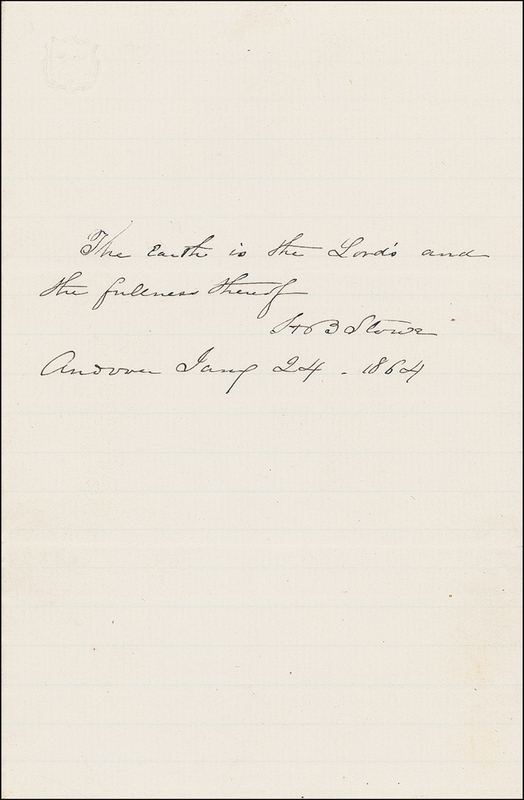 The Earth is the Lord's and
the fullness thereof
H B Stowe
Andover Jany 24 - 1864